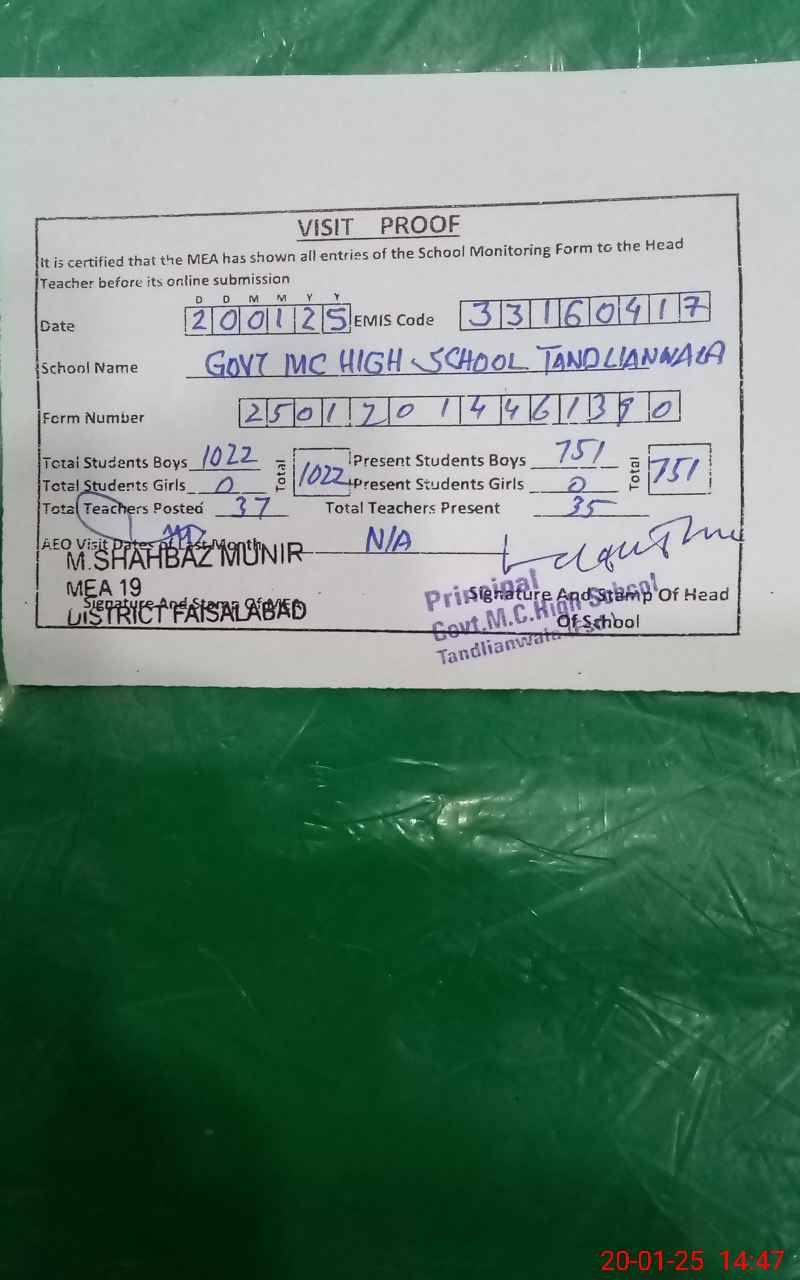 VISIT PROOF
It is certified that the MEA has shown all entries of the School Monitoring Form to the Head
Teacher before its online submission
D D M M Y Y
Date 200125 EMIS Code 33160417
School Name GOVT MC HIGH SCHOOL TANDLIANWALA
Form Number 25012014461390
Total Students Boys 1022 Total 1022 Present Students Boys 751 Total 751
Total Students Girls 0 Present Students Girls 0
Total Teachers Posted 37 Total Teachers Present 35
AEO Visit Dates of Last Month N/A
M.SHAHBAZ MUNIR
MEA 19
Signature And Stamp Of MEA
DISTRICT FAISALABAD
Signature And Stamp Of Head
Of School
Principal
Govt.M.C.High School
Tandlianwala
20-01-25 14:47